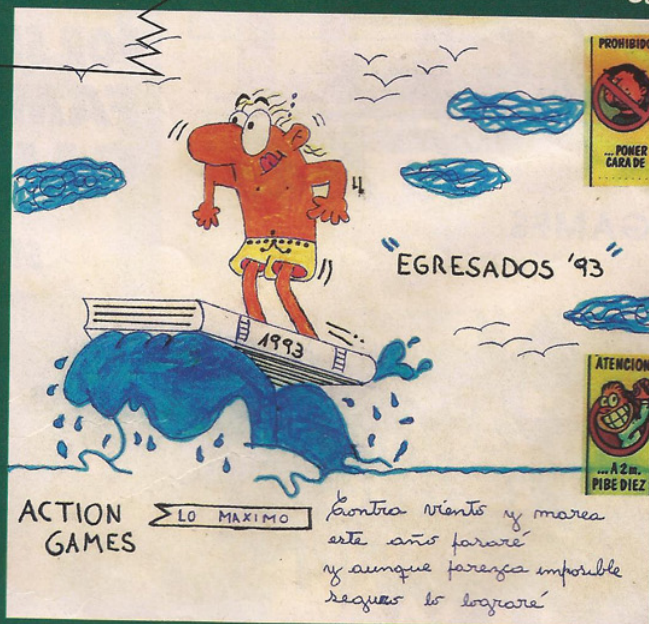 PROHIBIDO
... PONER
CARA DE
"EGRESADOS '93"
1993
ATENCION
... A 2 m.
PIBE DIEZ
ACTION
GAMES
LO MAXIMO
Contra viento y marea
este año pasaré
y aunque parezca imposible
seguro lo lograré